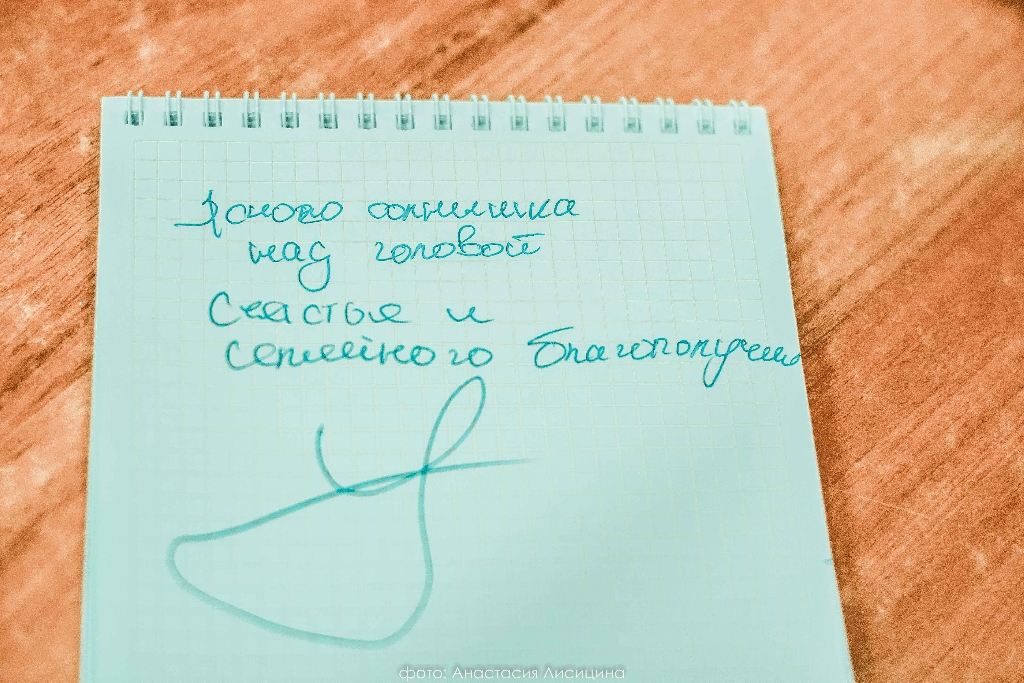 Ясного солнышка
над головой
Счастья и
семейного благополучия
фото: Анастасия Лисицина